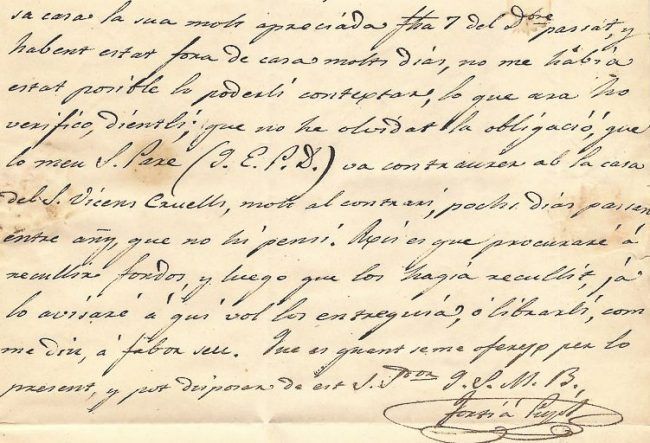 sa casa la sua molt apreciada fha 7 del Dbre passat, y
habent estat fora de casa molts dias, no me habia
estat posible lo poderli contextar, lo que ara ho
verifico, dientli; que no he olvidat la obligació, que
lo meu S. Pare (Q. E. P. D.) va contraurer ab la casa
del S. Vicens Cruells, molt al contrari, pochs dias passan
entre añy, que no hi pensi. Axis es que procuraré á
recullir fondos, y luego que los hagia recullit, já
lo avisaré á qui vol los entreguia, ó librarli, com
me diu, á fabor seu. Que es quant seme ofereyx per lo
present, y pot disposar de est S. Sdor Q. S. M. B.,
Fortiá